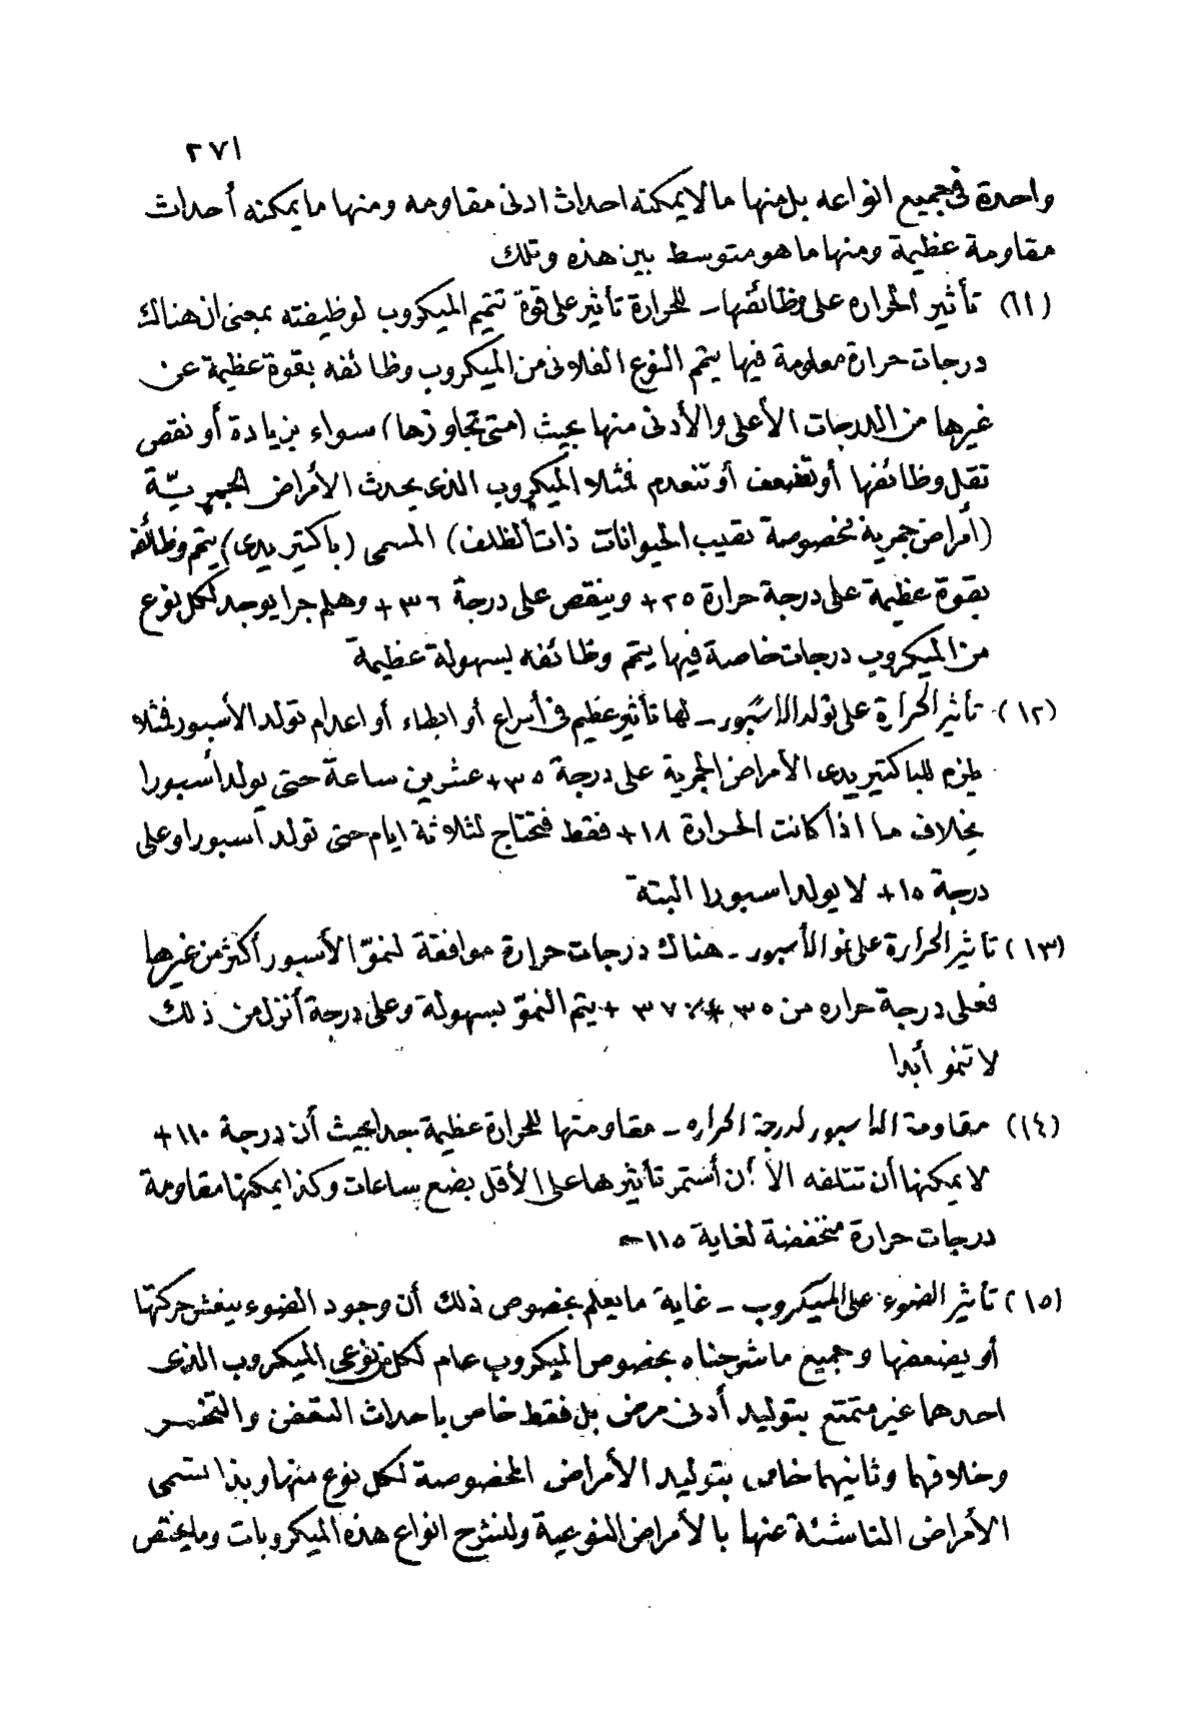 ٢٧١
واحدة فى جميع انواعه بل منها مالا يمكنه احداث ادنى مقاومه ومنها ما يمكنه أحداث
مقاومة عظيمة ومنها ما هو متوسط بين هذه وتلك
(١١) تأثير الحراره على وظائفها ـ للحرارة تأثير على قوة تتميم الميكروب لوظيفته بمعنى ان هناك
درجات حرارة معلومة فيها يتم النوع الفلانى من الميكروب وظائفه بقوة عظيمة عن
غيرها من الدرجات الأعلى والأدنى منها بحيث (متى تجاوزها) سواء بزيادة أو نقص
تقل وظائفها أو تضعف أو تنعدم فمثلا الميكروب الذى يحدث الأمراض الجمريّة
(أمراض جمرية مخصوصة تصيب الحيوانات ذات الظلف) المسمى (باكتيريدى) يتم وظائفه
بقوة عظيمة على درجة حرارة ٢٥ + وينقص على درجة ٣٦ + وهلم جرا يوجد لكل نوع
من الميكروب درجات خاصة فيها يتم وظائفه بسهولة عظيمة
(١٢) تأثير الحرارة على تولد الاسبور ـ لها تأثير عظيم فى أسراع أو ابطاء أو اعدام تولد الأسبور فمثلا
يلزم للباكتيريدى الأمراض الجمرية على درجة ٣٥ + عشرين ساعة حتى يولد أسبورا
بخلاف ما اذا كانت الحرارة ١٨ + فقط فتحتاج لثلاثة ايام حتى تولد أسبورا وعلى
درجة ١٥ + لا يولد اسبورا البتة
(١٣) تاثير الحرارة على نمو الأسبور ـ هناك درجات حرارة موافقة لنموّ الأسبور أكثر من غيرها
فعلى درجة حراره من ٣٥ ٣٧ + يتم النموّ بسهولة وعلى درجة أنزل من ذلك
لا تنمو أبدا
(١٤) مقاومة الأسبور لدرجة الحراره ـ مقاومتها للحرارة عظيمة جدا بحيث أن درجة ١١٠ +
لا يمكنها أن تتلفه الا أن أستمر تأثيرها على الأقل بضع ساعات وكذا يمكنها مقاومة
درجات حرارة منخفضة لغاية ١١٥ -
(١٥) تأثير الضوء على الميكروب ـ غاية ما يعلم بخصوص ذلك أن وجود الضوء ينعش حركتها
أو يضعفها وجميع ما شرحناه بخصوص الميكروب عام لكل من نوعى الميكروب الذى
احدهما غير متمتع بتوليد أدنى مرض بل فقط خاص باحداث التعفن والتخمر
وخلافهما وثانيهما خاص بتوليد الأمراض المخصوصة لكل نوع منها وبذا تسمى
الأمراض الناشئة عنها بالأمراض النوعية ولنشرح انواع هذه الميكروبات وما يختص